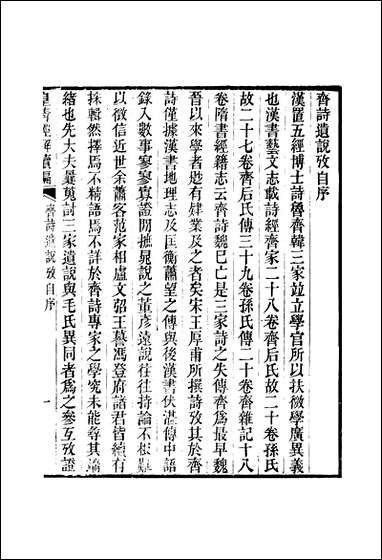 齊詩遺說攷自序
漢置五經博士詩魯齊韓三家竝立學官所以扶微學廣異義
也漢書藝文志載詩經齊家二十八卷齊后氏故二十卷孫氏
故二十七卷齊后氏傳三十九卷孫氏傳二十卷齊雜記十八
卷隋書經籍志云齊詩魏已亡是三家詩之失傳齊爲最早魏
晉以來學者尟有肄業及之者矣宋王厚甫所撰詩攷其於齊
詩僅據漢書地理志及匡衡蕭望之傳與後漢書伏湛傳中語
錄入數事寥寥寡證閒摭晁說之董彥遠說往往持論不根難
以徵信近世余蕭客范家相盧文弨王謨馮登府諸君皆續有
採輯然擇焉不精語焉不詳於齊詩專家之學究未能尋其端
緒也先大夫曩蒐討三家遺說與毛氏異同者爲之參互攷證
皇清經解續編
齊詩遺說攷自序
一